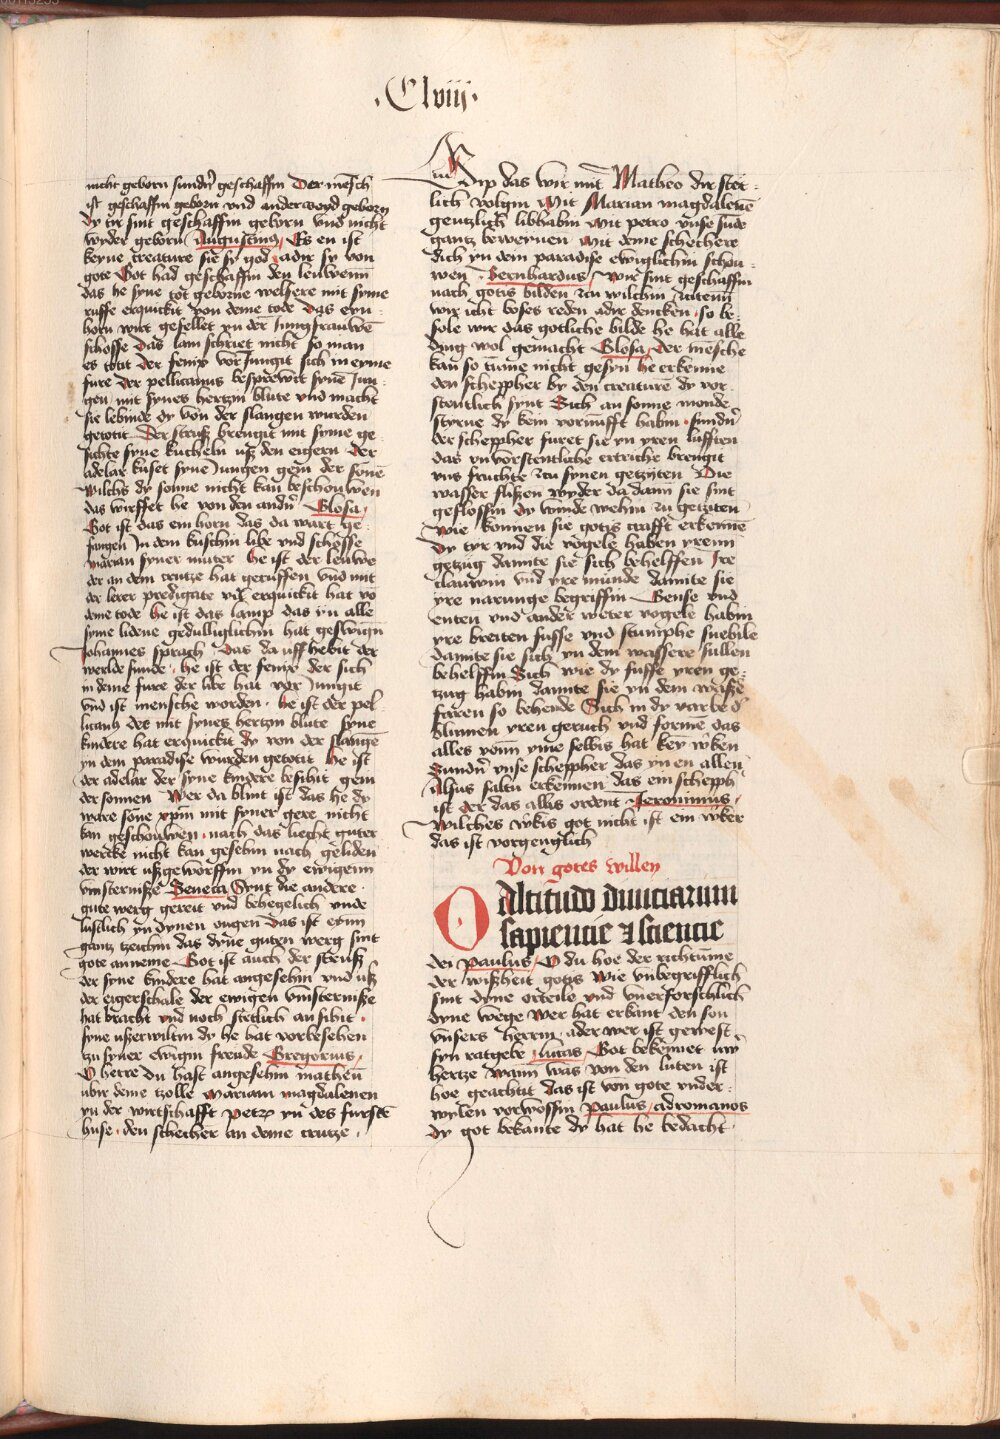 ·Clviii·
nicht geborn sundn̄ geschaffin Der mēsch
ist geschaffin geborn vnd anderweyd geborn
Dy tir sint geschaffin geborn vnd nicht
wyder geborn Augustinus Es en ist
keyne creature sie sy god adir sy von
gote Got had geschaffin den leuwenn
das he syne tot geborne welfere mit syme
ruffe erquickit von deme tode Das eyn
horn wirt gefellet yn der Jungfrauwē
schosse Das lam schriet nicht so man
es totit der fenix vor Jungit sich in eyme
fure Der pellicanus besprewit synē Jun
gen mit synes hertzin blute vnd macht
sie lebinde dy von der slangen wurden
getotit Der strusz brengit mit syme ge
sichte syne kucheln usz den eigern Der
adelar kuset syne Jungen gein der sonē
Wilchs dy sonne nicht kan beschouwen
das wirffet he von den andn̄ Glosa
Got ist das ein horn das da wart ge
fangen In dem kuschin libe vnd schosse
marian syner muter he ist der leuwe
der an dem crutze hat geruffen vnd mit
der lerer predigate vns erquickit hat vō
deme tode he ist das lamp das yn alle
syme lidene gedulliglichin hat geswigin
Johannes sprach Das da uff hebit der
werlde sunde he ist der fenix der sich
in deme fure der libe hat vor Jungit
vnd ist mensche worden he ist der pel
licanus der mit synes hertzin blute syne
kindere hat erquickit dy von der slangē
yn dem paradise wurden getotit he ist
der adelar der syne kindere besihit gein
der sonnen Wer da blint ist das he dy
ware sone xp̄m mit syner gere nicht
kan geschouwen nach das liecht guter
wercke nicht kan gesehin nach geliden
der wirt uszgeworffin yn dy ewigenn
vinsternisze Seneca Synt die andere
gute werg gereit vnd behegelich vnde
lustlich yn dynen ougen Das ist eynn
gantz tzeichin das dyne guten werg sint
gote anneme Got ist auch der strusz
der syne kindere hat angesehin vnd usz
der eigerschale der ewigen vinsternisze
hat bracht vnd noch stetlich an sihit
syne uszerwiltin dy he hat vorbesehen
zu syner ewigin freude Gregorius
O herre du hast angesehin matheū
ubir deme tzolle Mariam magdalenen
yn der wirtschafft Petrū yn des furstē
huse den schecher an deme crutze
Dip das wir mit Matheo dir stet
lich volgin Mit Marian magdalenē
gentzlich libhabin Mit petro vnse sūde
gantz beweynen Mit deme schechere
dich yn dem paradise ewiglichin schou
wen Bernhardus Wir sint geschaffin
nach gotis bilden zcu wilchin zciten
wir icht boses reden adir dencken so be
sole wir das gotliche bilde he hat alle
ding wol gemacht Glosa Der mēsche
kan so tūme nicht gesyn he erkenne
den schepher by den creaturē dy vor
stentlich synt Sich an sonne monde
styrne dy kein vornūfft habin sundn̄
der schepher furet sie yn yren lufften
das vnvorstentliche ertriche brengit
vns fruchte zcu synen getzyten Die
wasser fliszen wyder da dann sie sint
geflossin dy winde wehin zu getziten
Wie konnen sie gotis crafft erkennē
Dy tyr vnd die vogele haben yrenn
getzug damite sie sich behelffen Ire
clauwin vnd yre munde damite sie
yre narunge begriffin Gense vnd
enten vnd ander weter vogele habin
yre breiten fusse vnd stumphe snebile
damite sie sich yn dem wassere sullen
behelffin Sich wie dy fusse yren ge
tzug habin damite sie yn dem waszē
faren so behende Sich in dy varbe d̄
blumen yren geruch vnd formē das
alles vonn yme selbis hat key w̄ken
Sundn̄ vnse schepher das yn en allen
Alsus saltu erkennen das ein scheph̄
ist der das allis ordent Jeronimus
Wilches w̄kis got nicht ist ein w̄ker
das ist vorgenglich
Von gotes willen
O Altitudo diuiciarum
sapiencie ⁊ sciencie
dei Paulus O du hoe der richtūme
der wiszheit gotis wie vnbegrifflich
sint dyne orteile vnd vnerforschlich
dyne wege Wer hat erkant den son
vnsers herrin ader wer ist gewest
syn ratgebe Lucas Got bekēnnet uw̄
hertze wann was von den luten ist
hoe geachtit das ist von gote vnder
wylen vorwossin Paulus ad romanos
Dy got bekante dy hat he bedacht